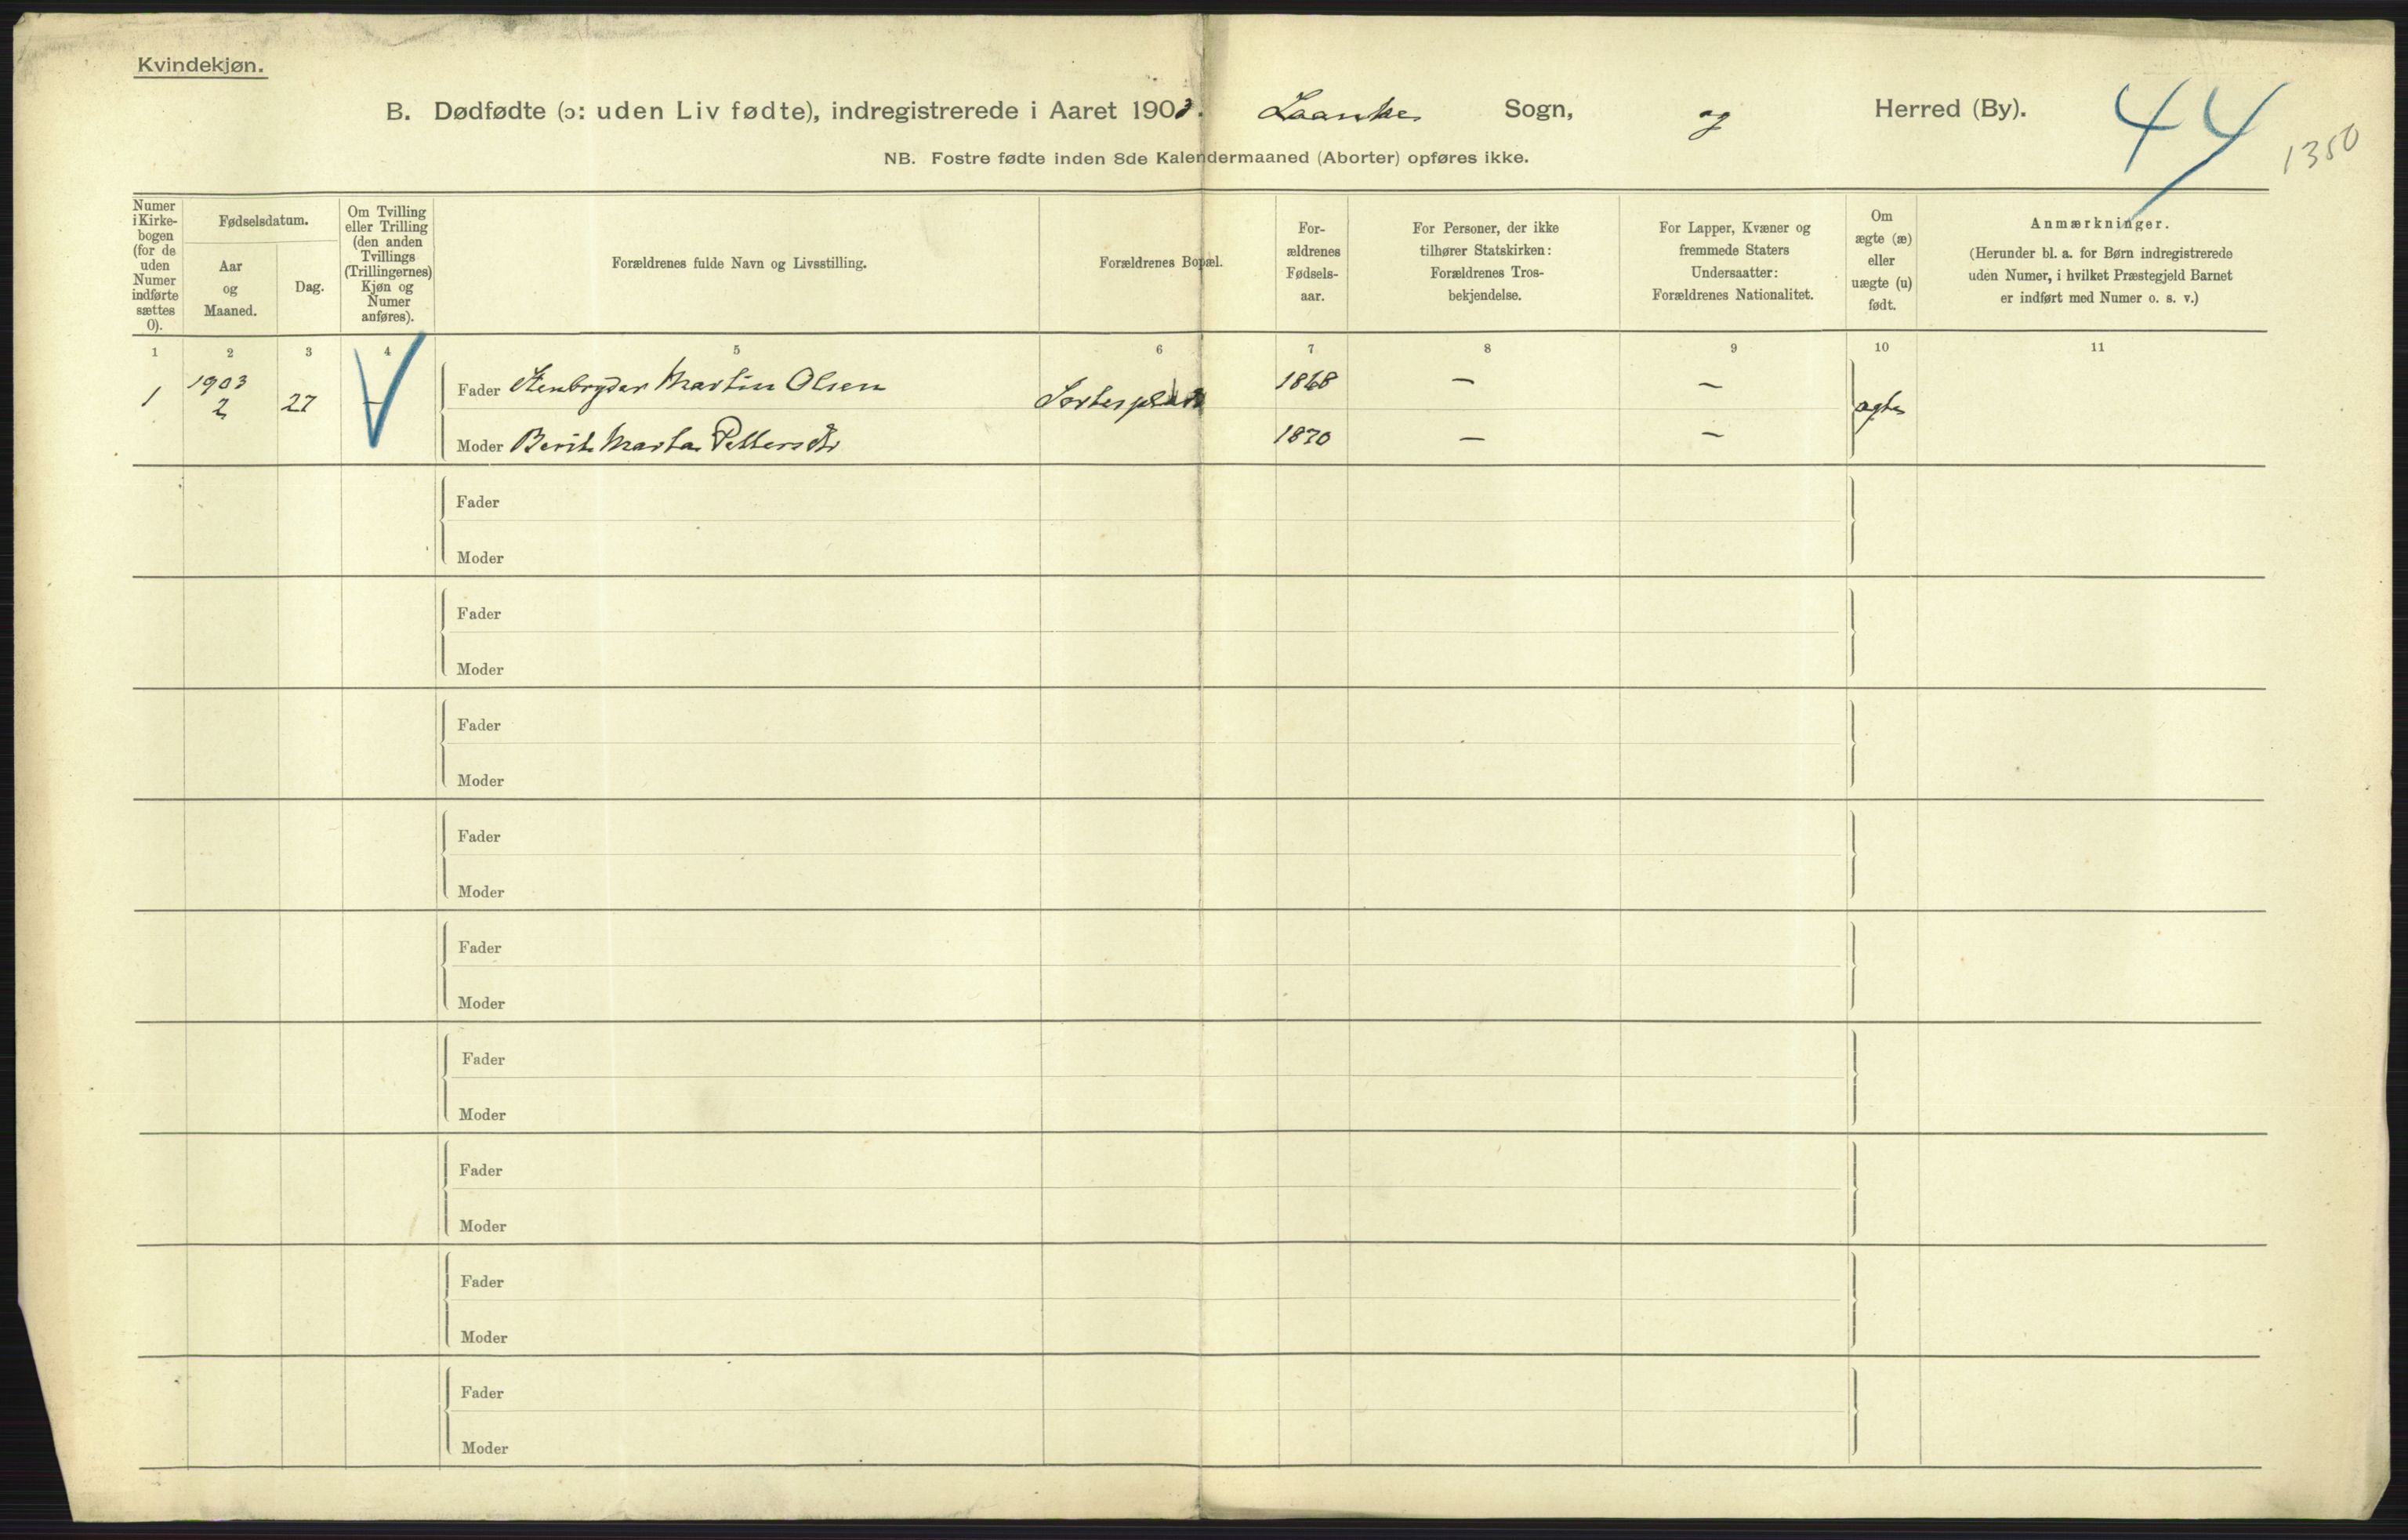 Kvindekjøn.
B. Dødfødte (ɔ: uden Liv fødte), indregistrerede i Aaret 1903. Laanke Sogn, og Herred (By).
44
1350
NB. Fostre fødte inden 8de Kalendermaaned (Aborter) opføres ikke.
Numer i Kirkebogen (for de uden Numer indførte sættes 0).
Fødselsdatum.
Aar og Maaned.
Dag.
Om Tvilling eller Trilling (den anden Tvillings (Trillingernes) Kjøn og Numer anføres).
Forældrenes fulde Navn og Livsstilling.
Forældrenes Bopæl.
For-ældrenes Fødsels-aar.
For Personer, der ikke tilhører Statskirken: Forældrenes Tros-bekjendelse.
For Lapper, Kvæner og fremmede Staters Undersaatter: Forældrenes Nationalitet.
Om ægte (æ) eller uægte (u) født.
Anmærkninger.
(Herunder bl. a. for Børn indregistrerede uden Numer, i hvilket Præstegjeld Barnet er indført med Numer o. s. v.)
1 2 3 4 5 6 7 8 9 10 11
1 1903 2 27 –
Fader Stenbryder Martin Olsen 1868 – –
ægte
Moder Berit Marta Pettersdtr 1870 – –
Fader
Moder
Fader
Moder
Fader
Moder
Fader
Moder
Fader
Moder
Fader
Moder
Fader
Moder
Fader
Moder
Fader
Moder